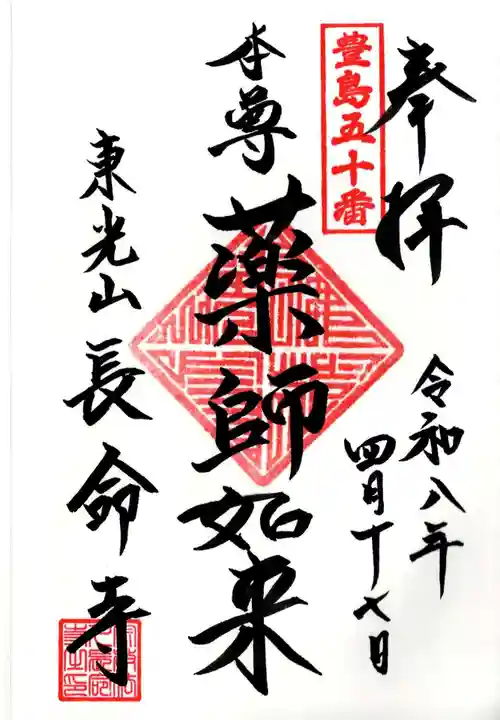 奉拝
豊島五十番
令和八年
四月十七日
本尊
薬師如来
東光山長命寺